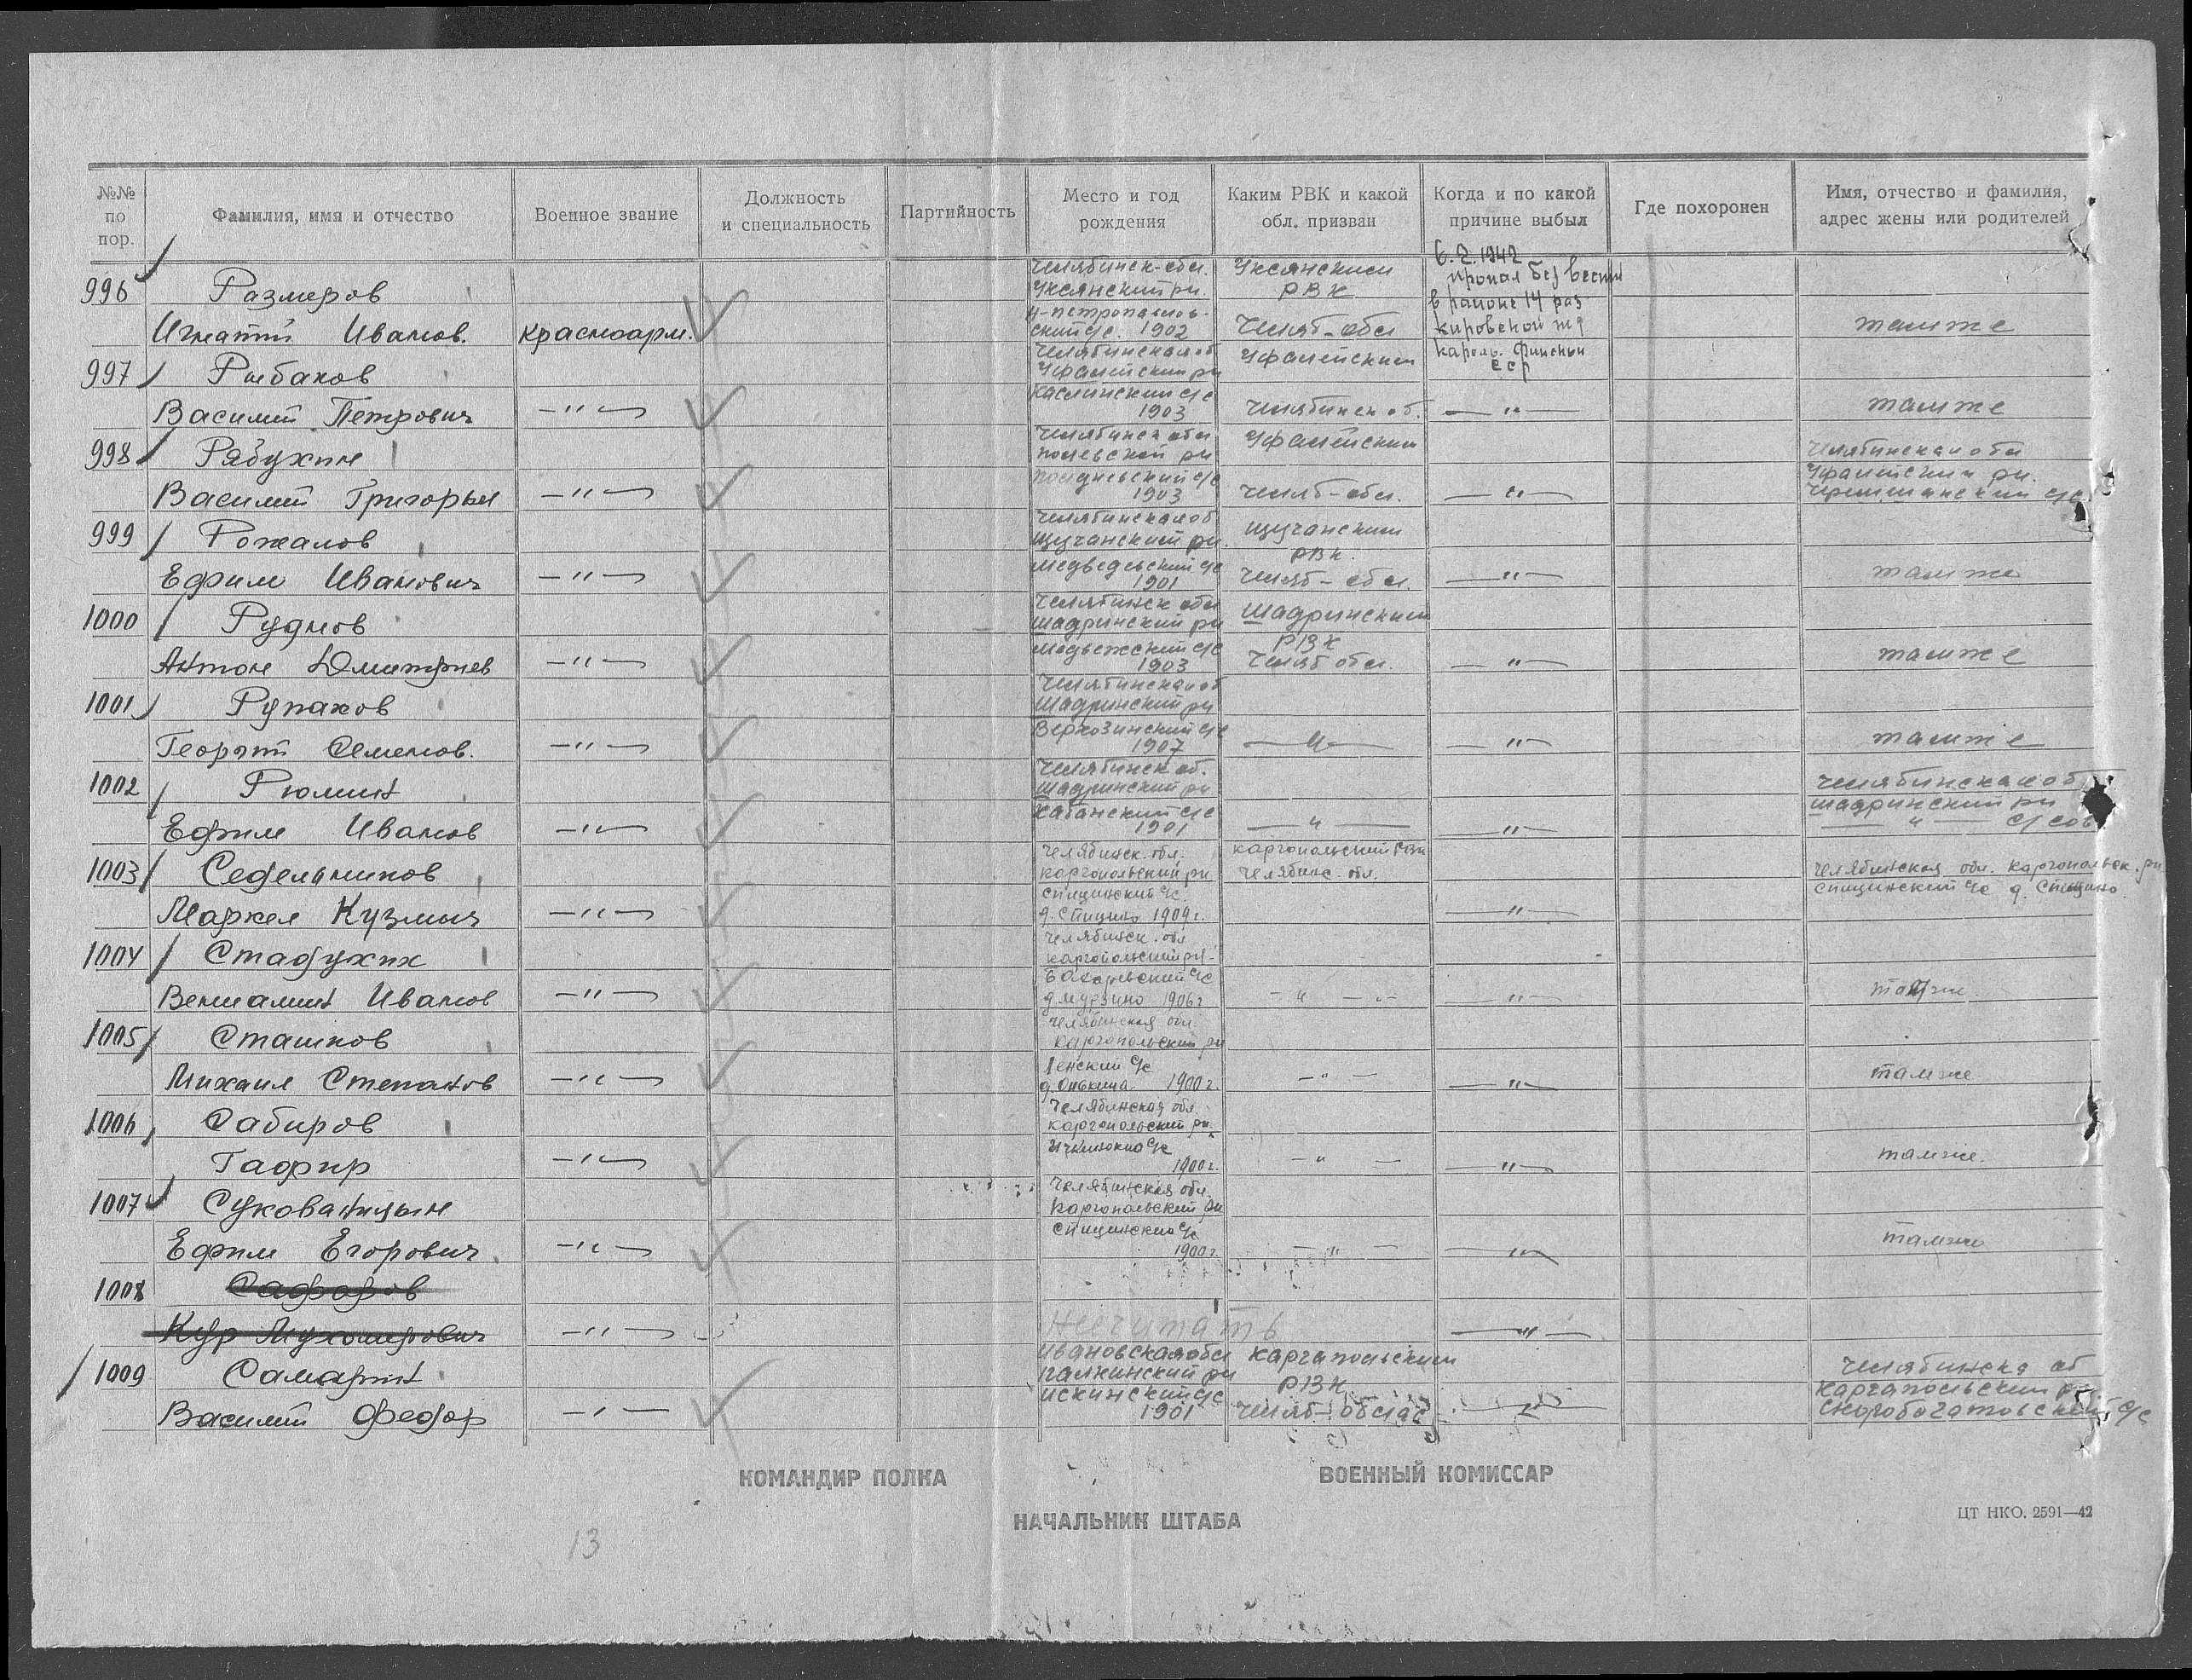 №№ по пор.
Фамилия, имя и отчество
Военное звание
Должность и специальность
Партийность
Место и год рождения
Каким РВК и какой обл. призван
Когда и по какой причине выбыл
Где похоронен
Имя, отчество и фамилия, адрес жены или родителей
996 Размеров
Игнатий Иванов. красноарм.
Челябинск-обл.
Уксянский рн.
1902
Уксянским
РВК
Челяб-обл
6.2.1942
пропал без вести
в районе 14 раз
кировской жд
Карело-Финской
ССР
там же
997 Рыбаков
Василий Петрович —"—
Челябинская об
Уфалейский рн
Каслинский с/с
1903
Уфалейским
Челябинск об.
—"—
там же
998 Рябухин
Василий Григорьев —"—
Челябинск обл
полевской рн
1903
Уфалейским
Челяб-обл.
—"—
Челябинская обл
Уфалейский рн.
999 Рожалов
Ефим Иванович —"—
Челябинская об
Щучанский рн.
Медведевский с/с
1901
Щучанским
РВК.
Челяб-обл.
—"—
там же
1000 Руднов
Антон Дмитриев —"—
Челябинск обл
Шадринский рн
1903
Шадринским
РВК
Челяб обл.
—"—
там же
1001 Рупаков
Георгий Семенов. —"—
Челябинская об
Шадринский рн
1907
—"—
—"—
там же
1002 Рюмин
Ефим Иванов —"—
Челябинск об.
Шадринский рн
1901
—"—
—"—
Челябинская об
Шадринский рн
—"— с/сов
1003 Седельников
Маркел Кузмич —"—
Челябинск. обл.
Каргопольский рн
Спицинский с/с
д. Спицино 1909г.
Каргопольский РВК
Челябинс. обл.
—"—
Челябинская обл. Каргопольск. рн
Спицинский с/с д. Спицино
1004 Стадухин
Вениамин Иванов —"—
Челябинск. обл
Каргопольский рн.
д. Мурзино 1906г
—"—
—"—
там же
1005 Сташков
Михаил Степанов —"—
Челябинская обл
Каргопольский рн
1900г.
—"—
—"—
там же
1006 Сабиров
Гафир —"—
Челябинская обл
Каргопольский рн.
Ичкинский с/с
1900г.
—"—
—"—
там же.
1007 Суковатицын
Ефим Егорович. —"—
Челябинская обл.
Каргопольский рн
Спицинский с/с
1900г.
—"—
—"—
там же
1008 Сафаров
—"—
Не считать
—"—
1009 Самарин
Василий Федор —"—
Ивановская обл
1901
Каргапольским
РВК
—"—
Челябинска об
Каргапольский рн
Скоробогатовский с/с
КОМАНДИР ПОЛКА
ВОЕННЫЙ КОМИССАР
НАЧАЛЬНИК ШТАБА
ЦТ НКО. 2591—42
13